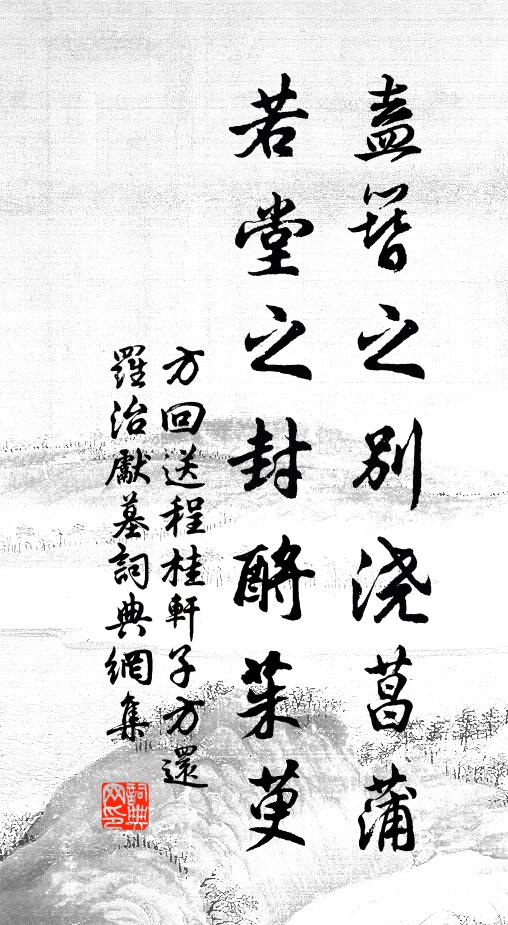 盍簪之别浇菖蒲
若堂之封酹茱萸
方回送程桂軒子方還
羅治獻墓詞典網集
詞典网印